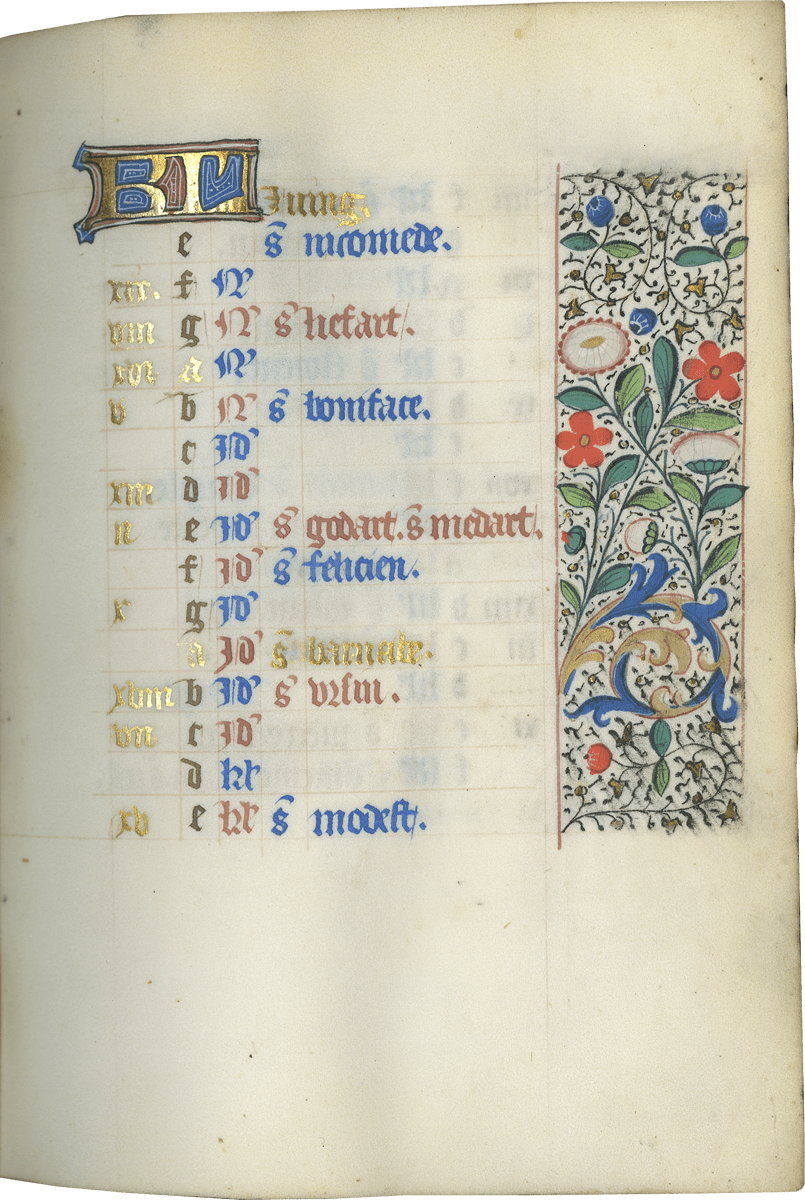 KL Iunius
e S nicomede.
xix. f N
viii g N S liefart.
xvi a N
v b N S boniface.
c Id
xiii d Id
ii e Id S godart. S medart.
f Id S felicien.
x g Id
a Id S barnabe.
xviii b Id S vrsin.
vii c Id
d kl
xv e kl S modest.